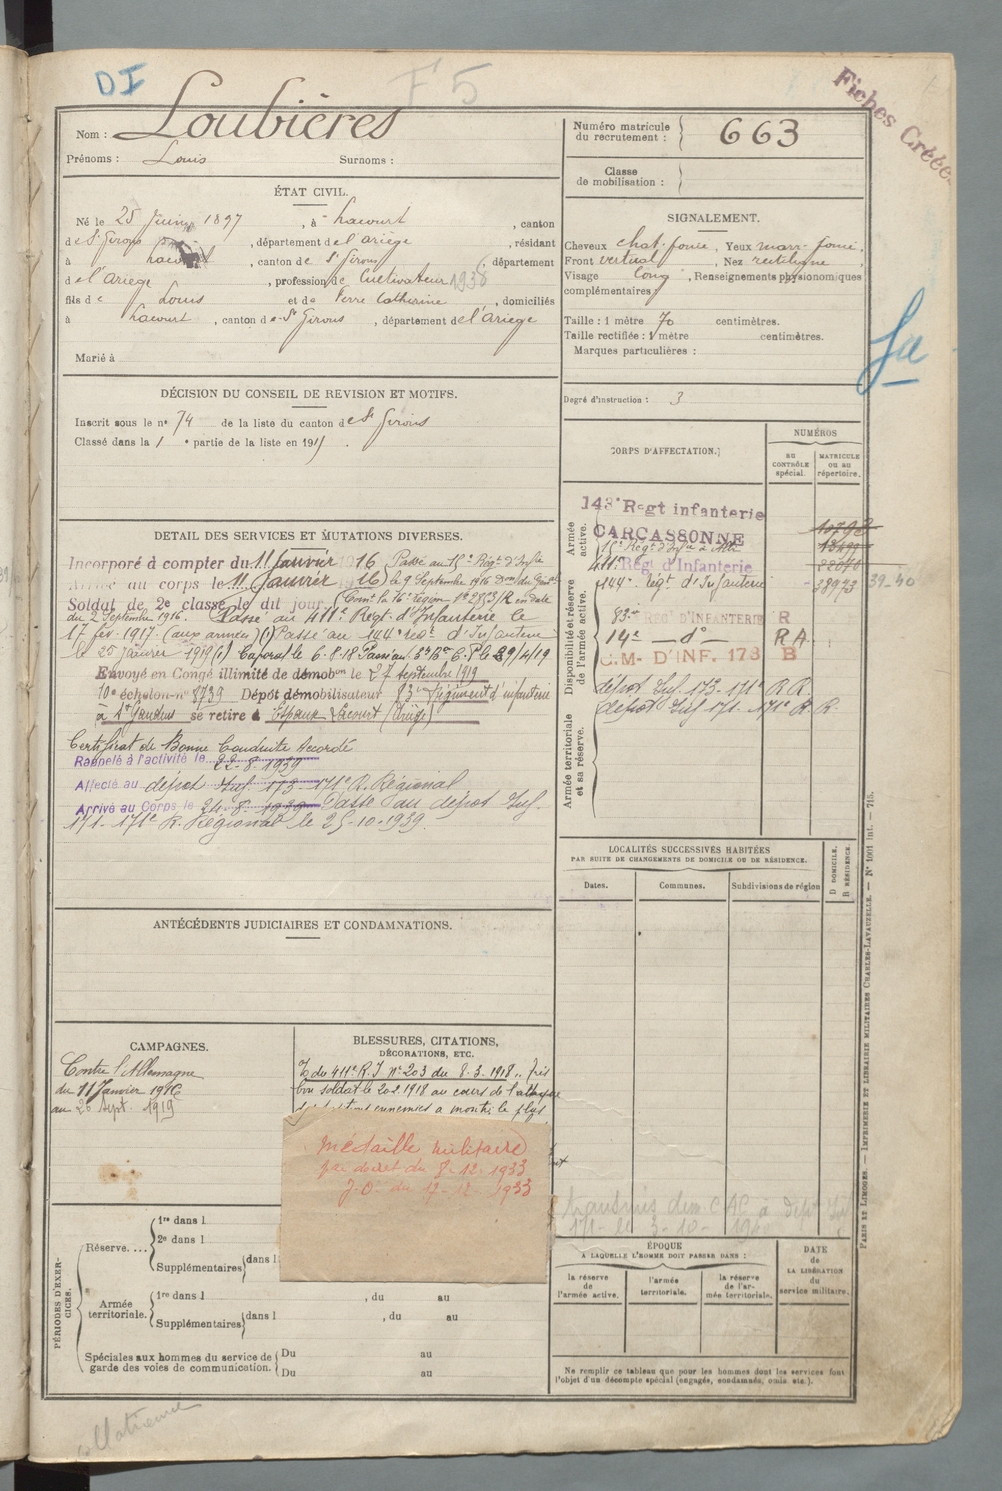 DI
F5
Fiches Créées
Nom : Loubières
Prénoms : Louis Surnoms :
Numéro matricule du recrutement : 663
Classe de mobilisation :
ÉTAT CIVIL.
Né le 25 Juin 1897, à Lacourt, canton
de St Girons, département de l'ariège, résidant
à Lacourt, canton de St Girons, département
de l'ariège, profession de Cultivateur 1938
fils de Louis et de Catherine, domiciliés
à Lacourt, canton de St Girons, département de l'ariège
Marié à
SIGNALEMENT.
Cheveux chat. foncé, Yeux marr. foncé.
Front vertical, Nez rectiligne.
Visage long, Renseignements physionomiques
complémentaires :
Taille : 1 mètre 70 centimètres.
Taille rectifiée : 1 mètre centimètres.
Marques particulières :
Degré d'instruction : 3
DÉCISION DU CONSEIL DE REVISION ET MOTIFS.
Inscrit sous le n° 74 de la liste du canton de St Girons
Classé dans la 1e partie de la liste en 191
CORPS D'AFFECTATION.
NUMÉROS
AU CONTRÔLE spécial.
MATRICULE ou au répertoire.
Armée active.
143e Regt infanterie
CARCASSONNE
15e Régt d'Infie
411e Régt d'Infanterie
144e Régt d'Infanterie 38973 39-40
Disponibilité et réserve de l'armée active.
83e REGt D'INFANTERIE R
14e — do — RA
C.M. D'INF. 173 B
dépôt Inf. 173-171e R.R.
dépôt Inf 171-171e R.R.
Armée territoriale et sa réserve.
DETAIL DES SERVICES ET MUTATIONS DIVERSES.
Incorporé à compter du 11 Janvier 1916 Passé au 15e Régt d'Infie
Arrivé au corps le 11 Janvier 1916 le 9 Septembre 1916
Soldat de 2e classe le dit jour
du 2 Septembre 1916. Passé au 411e Regt. d'Infanterie le
17 fév. 1917. (aux armées) (1) Passé au 144e regt d'Infanterie
le 25 Janvier 1919 (1) Caporal le 6.8.18 29/4/19
Envoyé en Congé illimité de démobon le 27 septembre 1919
10e échelon n° 8739 Dépôt démobilisateur 83e Régiment d'infanterie
à St Gaudens se retire à Lacourt (Ariège)
Certificat de Bonne Conduite Accordé
Rappelé à l'activité le 22-8-1939
Affecté au dépôt Inf. 173-171e R. Régional
Arrivé au Corps le 24-8-1939 Passé au dépôt Inf.
171-171e R. Régional le 25-10-1939.
LOCALITÉS SUCCESSIVES HABITÉES
PAR SUITE DE CHANGEMENTS DE DOMICILE OU DE RÉSIDENCE.
Dates. Communes. Subdivisions de région
D DOMICILE.
R RÉSIDENCE.
ANTÉCÉDENTS JUDICIAIRES ET CONDAMNATIONS.
CAMPAGNES.
Contre l'Allemagne
du 11 Janvier 1916
au 26 Sept. 1919
BLESSURES, CITATIONS,
DÉCORATIONS, ETC.
du 411e R.I n° 203 du 8.3.1918 „ très
bon soldat le 20.2.1918 au cours de l'attaque
des positions ennemies a montré le plus
Médaille militaire
par décret du 8.12.1933
J.O. du 17-12-1933
171- le 3-10-
PÉRIODES D'EXERCICES.
Réserve....
1re dans l
2e dans l
Supplémentaires dans l
Armée territoriale.
1re dans l , du au
Supplémentaires dans l , du au
Spéciales aux hommes du service de garde des voies de communication.
Du au
Du au
ÉPOQUE
A LAQUELLE L'HOMME DOIT PASSER DANS :
la réserve de l'armée active.
l'armée territoriale.
la réserve de l'armée territoriale.
DATE de LA LIBÉRATION du service militaire.
Ne remplir ce tableau que pour les hommes dont les services font
l'objet d'un décompte spécial (engagés, condamnés, omis, etc.).
PARIS ET LIMOGES. — IMPRIMERIE ET LIBRAIRIE MILITAIRES CHARLES-LAVAUZELLE. — N° 1001 int. — 715.